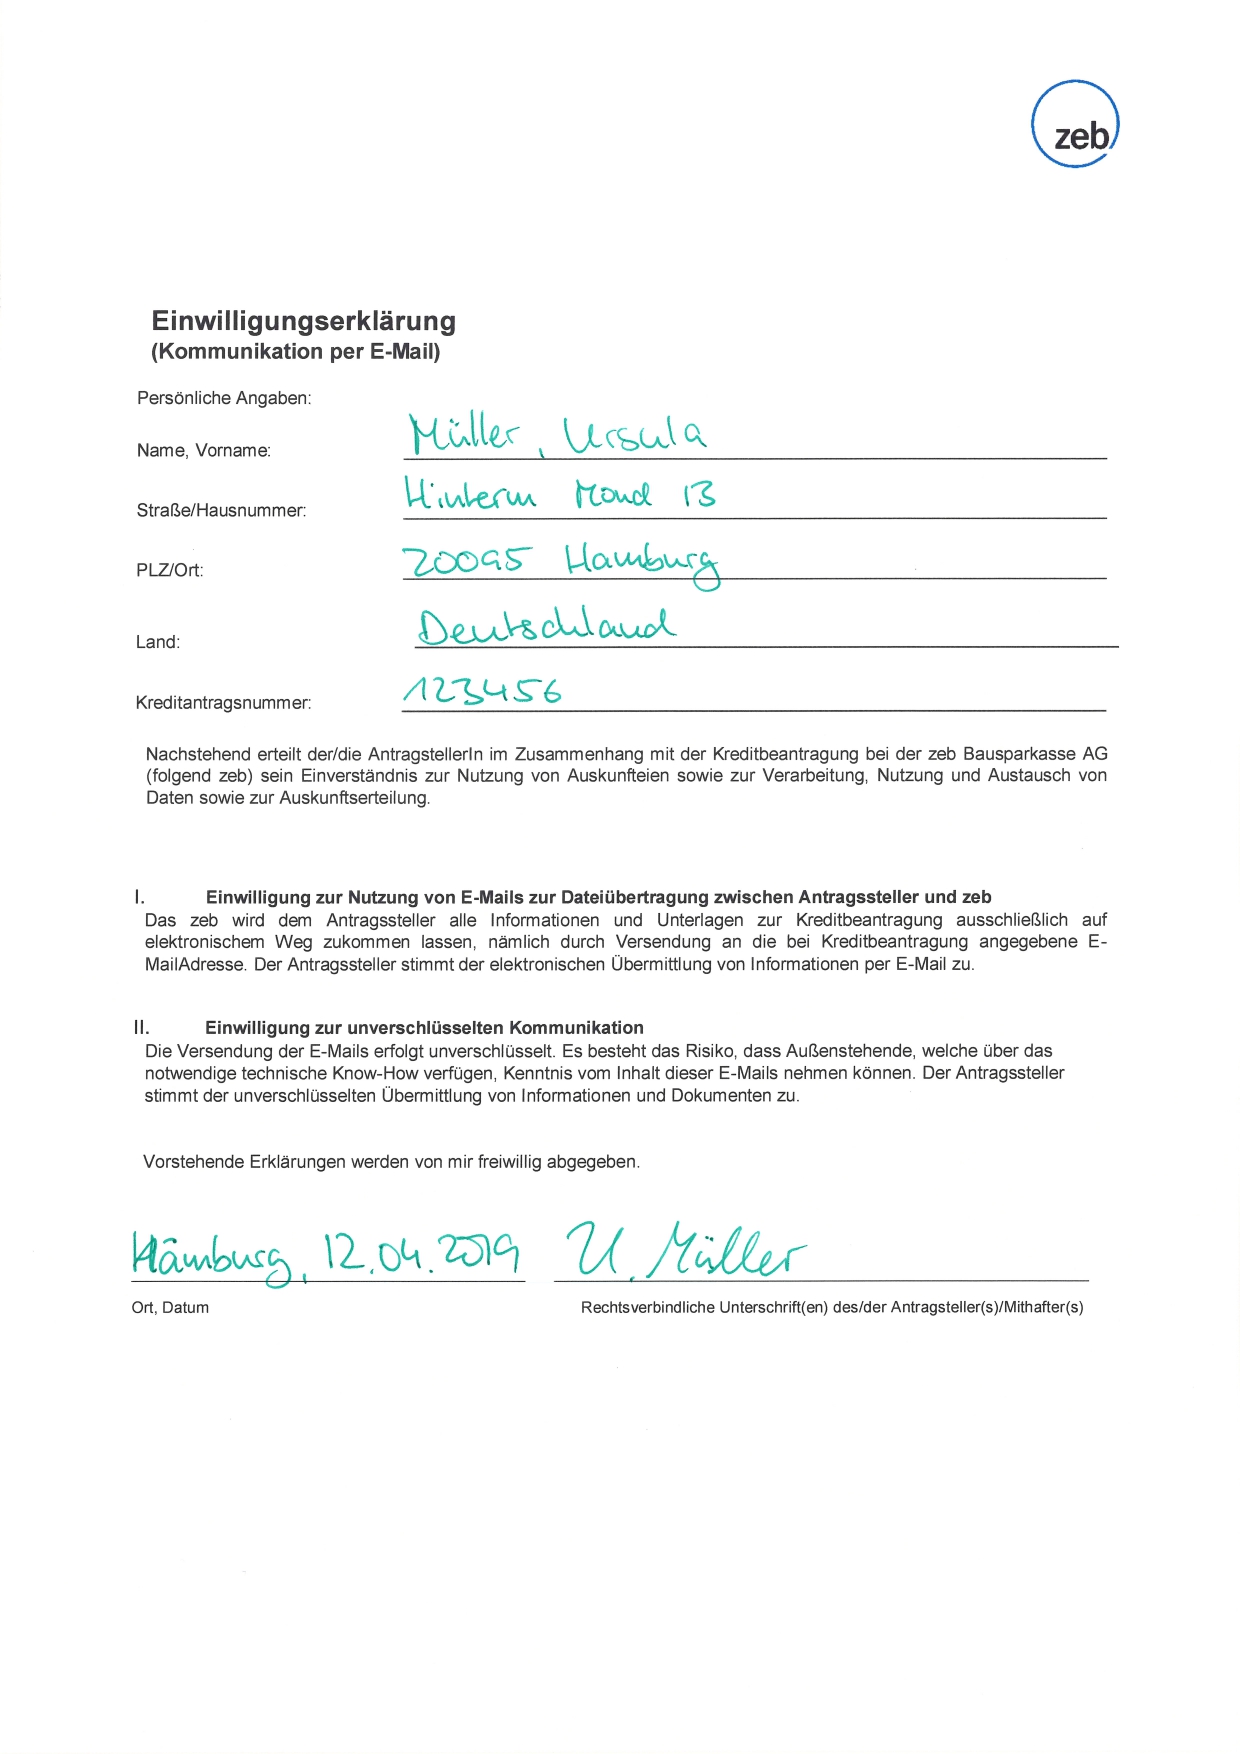 zeb
Einwilligungserklärung
(Kommunikation per E-Mail)
Persönliche Angaben:
Name, Vorname: Müller, Ursula
Straße/Hausnummer: Hinterm Mond 13
PLZ/Ort: 20095 Hamburg
Land: Deutschland
Kreditantragsnummer: 123456
Nachstehend erteilt der/die AntragstellerIn im Zusammenhang mit der Kreditbeantragung bei der zeb Bausparkasse AG
(folgend zeb) sein Einverständnis zur Nutzung von Auskunfteien sowie zur Verarbeitung, Nutzung und Austausch von
Daten sowie zur Auskunftserteilung.
I. Einwilligung zur Nutzung von E-Mails zur Dateiübertragung zwischen Antragssteller und zeb
Das zeb wird dem Antragssteller alle Informationen und Unterlagen zur Kreditbeantragung ausschließlich auf
elektronischem Weg zukommen lassen, nämlich durch Versendung an die bei Kreditbeantragung angegebene E-
MailAdresse. Der Antragssteller stimmt der elektronischen Übermittlung von Informationen per E-Mail zu.
II. Einwilligung zur unverschlüsselten Kommunikation
Die Versendung der E-Mails erfolgt unverschlüsselt. Es besteht das Risiko, dass Außenstehende, welche über das
notwendige technische Know-How verfügen, Kenntnis vom Inhalt dieser E-Mails nehmen können. Der Antragssteller
stimmt der unverschlüsselten Übermittlung von Informationen und Dokumenten zu.
Vorstehende Erklärungen werden von mir freiwillig abgegeben.
Hamburg, 12.04.2019 U. Müller
Ort, Datum Rechtsverbindliche Unterschrift(en) des/der Antragsteller(s)/Mithafter(s)